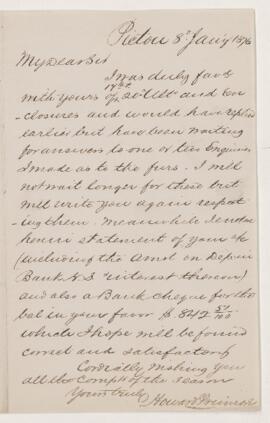 Pictou 8th Jany 1876
My Dear Sir
I was duly favd
with yours of 20th Ult and En
closures and would have replied
earlier but have been waiting
for answers to one or two Enquiries
I made as to the furs. I will
not wait longer for these but
will write you again respect
ing them. Meanwhile I enclose
herein statement of your a/c
(including the amt on Deposit
Bank N.S interest thereon)
and also a Bank cheque for the
bal in your favor $.842
which I hope will be found
correct and satisfactory
Cordially wishing you
all the Complts of the season
Yours truly
Howard Primrose